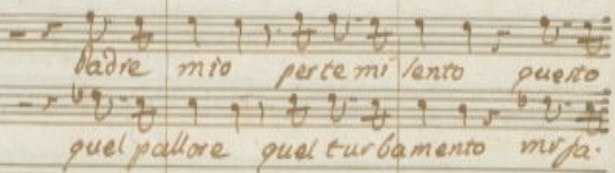 Padre mio per te mi sento questo
quel pallore quel turbamento mi fa.